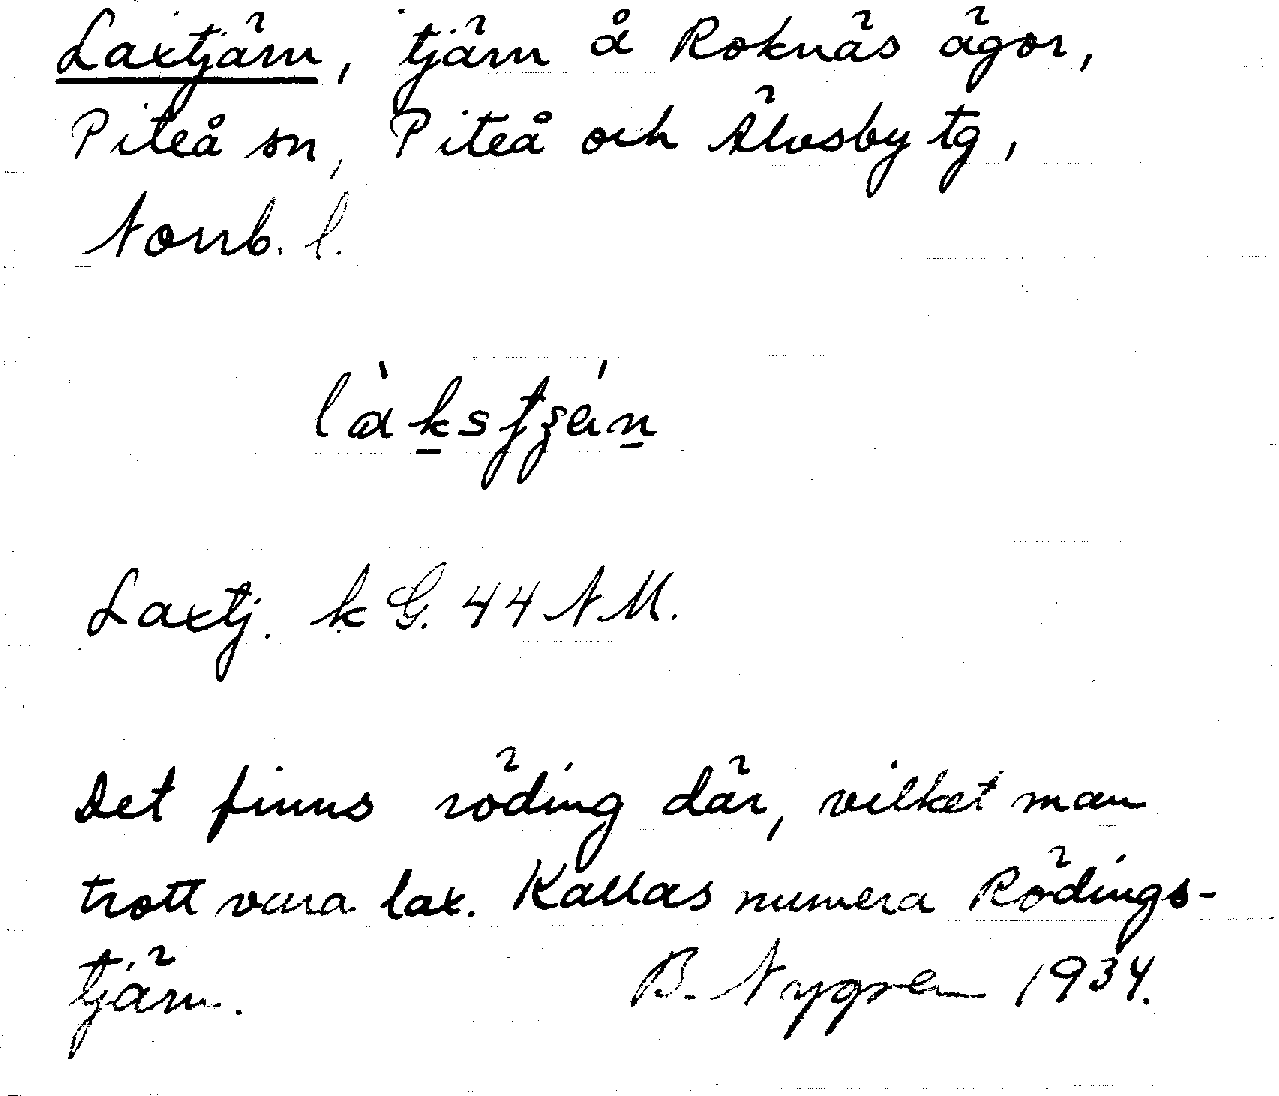 Laxtjärn, tjärn å Roknäs ägor,
Piteå sn, Piteå och Älvsby tg,
Norrb. l.
Laxtj. k G. 44 N M.
Det finns röding där, vilket man
trott vara lax. Kallas numera Rödings-
tjärn. B. Nygren 1934.